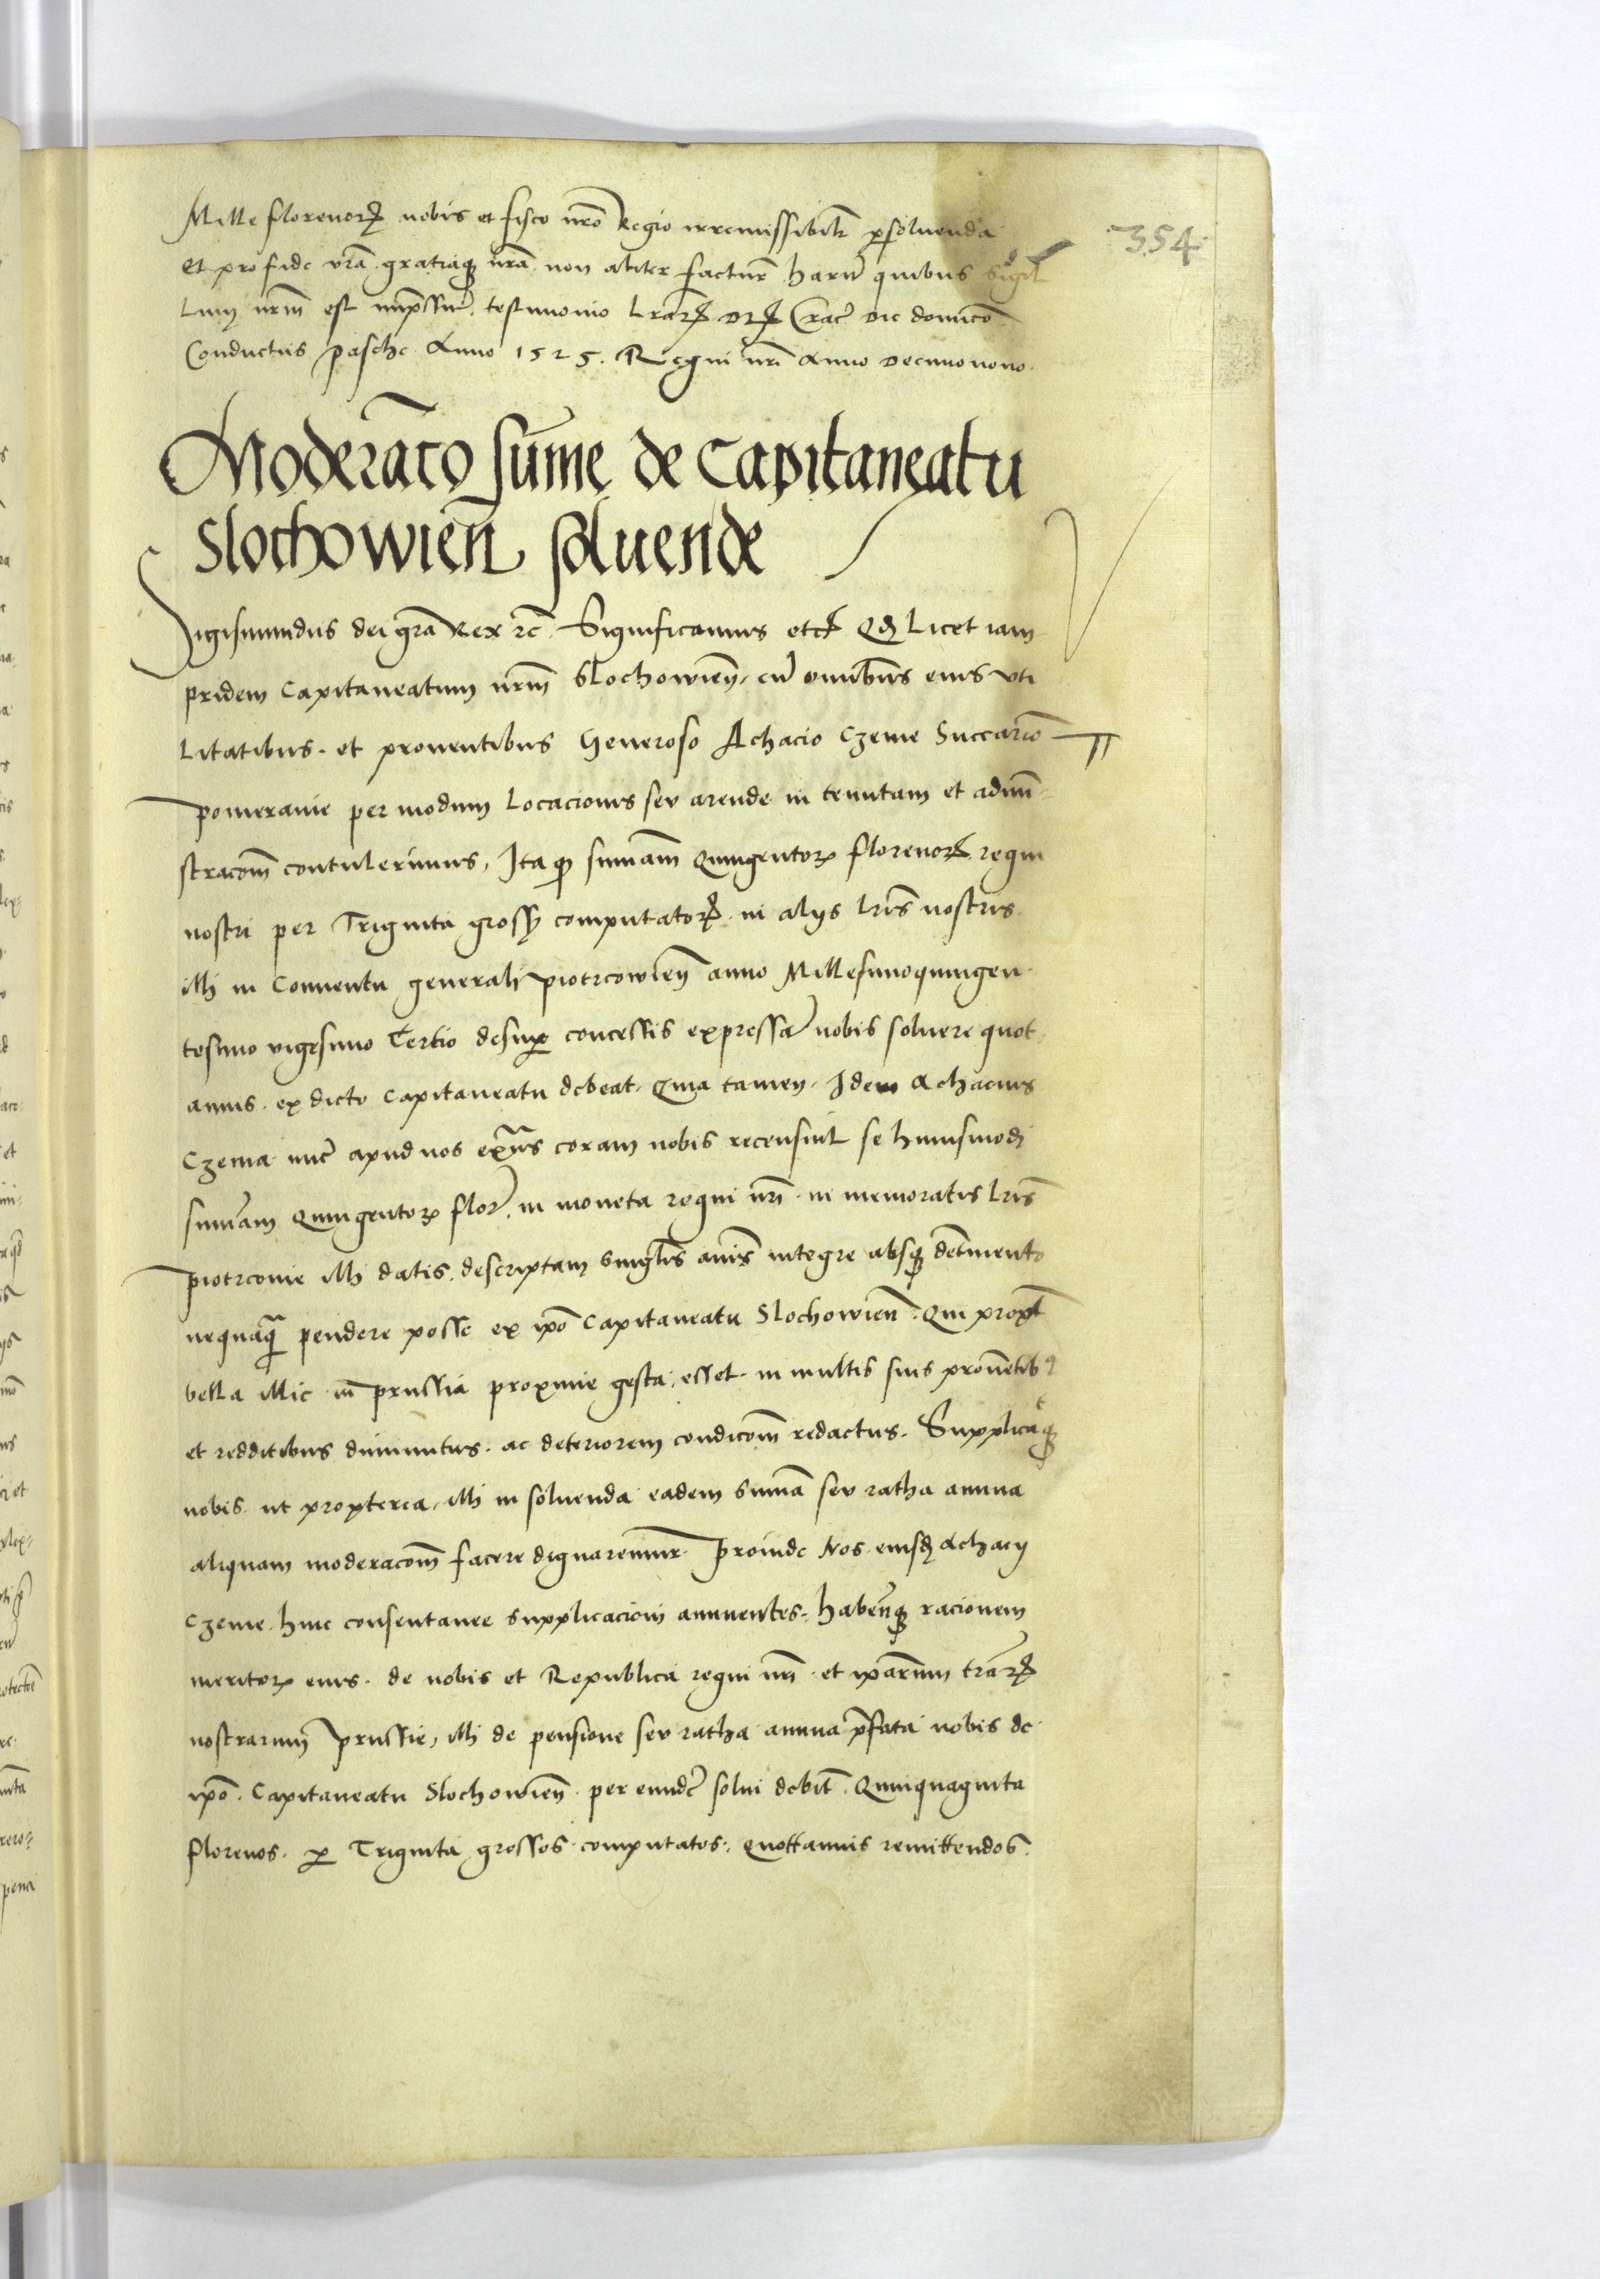 354
Mille florenoꝝ nobis et fisco nr̄o Regio irremissibilr̄ ꝑsoluenda
Et pro fide vr̄a gratiaqꝫ nr̄a non aliter facturi harū quibus Sigil
lum nr̄m est imp̄ssum testimonio lr̄aꝝ Datꝝ Crac̄ die dominico
Conductus pasche Anno 1525. Regni nr̄i Anno decimonono.
Moderac̄o sum̄e de Capitaneatu
Slochowien̄ soluende
Sigismundus dei gr̄a Rex ⁊c̄. Significamus etc̄ Qd̄ licet iam
pridem Capitaneatum nr̄m Slochowien̄, cū omnibus eius vti
litatibus. et prouentibus Generoso Achacio Czeme Succam̄io
pomeranie per modum locacionis seu arende in tenutam et admi
stracom̄ contulerimus, Ita qꝫ summam Quingentoꝝ florenoꝝ regni
nostri per Triginta grossꝫ computatoꝝ. in alijs lr̄is nostris
illi in Conuentu generali piotrcowien̄ anno Millesimoquingen
tesimo vigesimo Tertio desuꝑ concessis expressam̄ nobis soluere quot
annis. ex dicto Capitaneatu debeat. Quia tamen. Idem Achacius
Czema nūc apud nos exn̄s coram nobis recensuit se huiusmodi
summam Quingentoꝝ flor̄. in moneta regni nr̄i. in memoratis lr̄is
piotrconie illi datis. descriptam singlīs annis integre absqꝫ detrimento
nequaq̄ pendere posse ex ip̄o Capitaneatu Slochowien̄. Qui propt̄
bella illic in prussia proxime gesta. esset. in multis suis prouētibꝰ
et redditibus diminutus. ac deteriorem condicom̄ redactus. Supplicaͭqꝫ
nobis ut propterea, illi in soluenda eadem summa seu ratha annua
aliquam moderacom̄ facere dignaremur. Proinde Nos eiusd̄ Achacij
Czeme. huic consentanee supplicacioni annuentes. habenͭqꝫ racionem
meritoꝝ eius. de nobis et Republica regni nr̄i. et ip̄arum tr̄aꝝ
nostrarum prussie, illi de pensione seu ratha annua p̄fata nobis de
ip̄o. Capitaneatu Slochowien̄ per eundē solui debit̄. Quinquaginta
florenos. ꝑ Triginta grossos computatos. quottannis remittendos.